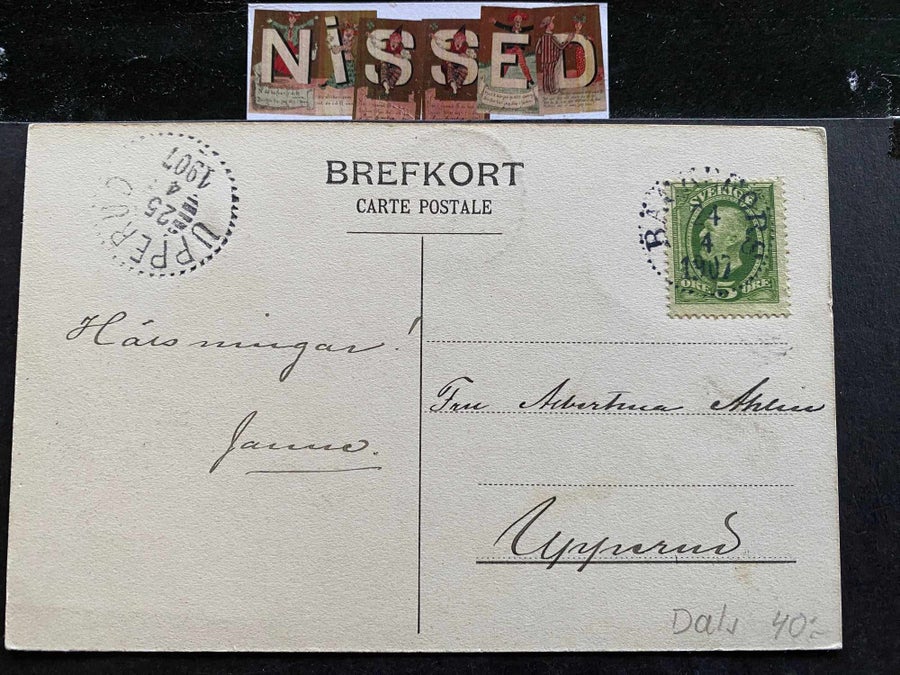 NiSSED
BREFKORT
CARTE POSTALE
UPPERUD
25
4
1907
SVERIGE
4
4
1907
5 ÖRE
Hälsningar!
Janne.
Fru Albertina Ahlin
Upperud
Dals 40:-